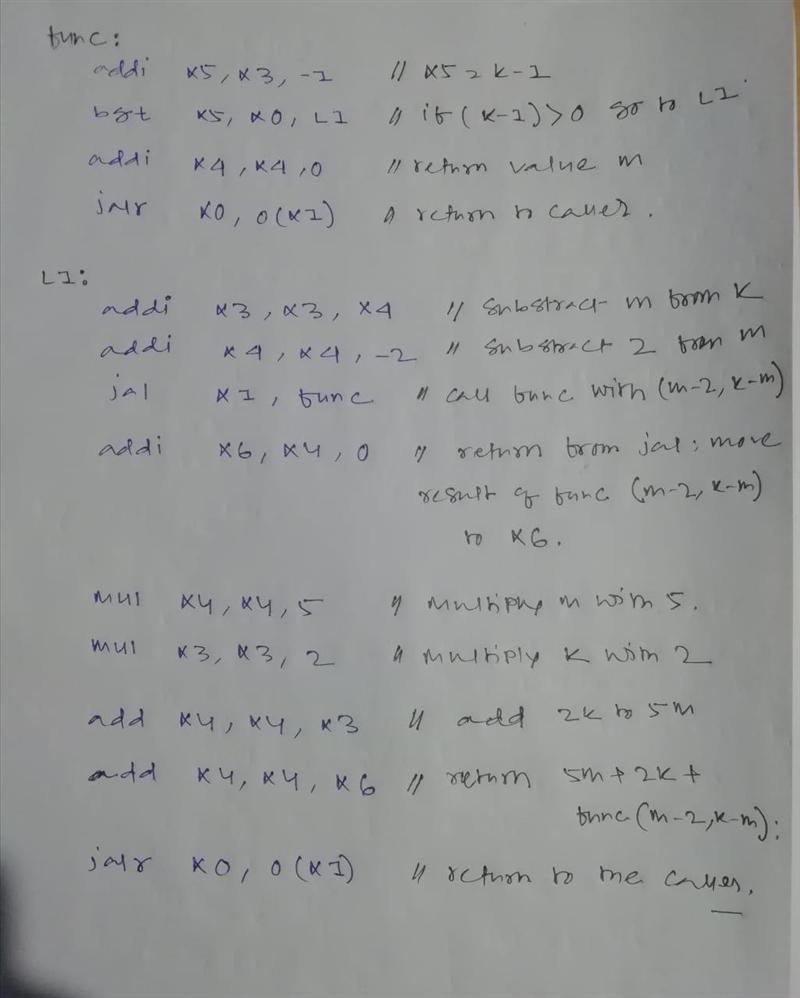 func:
addi x5, x3, -1 // x5 = k-1
bgt x5, x0, L1 // if (k-1)>0 go to L1
addi x4, x4, 0 // return value m
jalr x0, 0(x1) // return to caller.
L1:
addi x3, x3, x4 // substract m from k
addi x4, x4, -2 // substract 2 from m
jal x1, func // call func with (m-2, k-m)
addi x6, x4, 0 // return from jal; move
result of func (m-2, k-m)
to x6.
mul x4, x4, 5 // multiply m with 5.
mul x3, x3, 2 // multiply k with 2
add x4, x4, x3 // add 2k to 5m
add x4, x4, x6 // return 5m + 2k +
func(m-2, k-m);
jalr x0, 0(x1) // return to the caller.